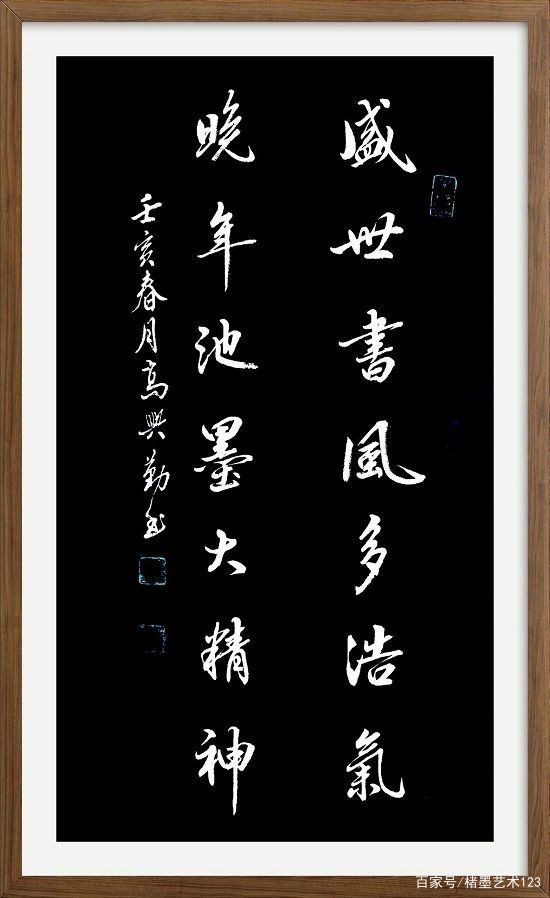 盛世書風多浩氣
晚年池墨大精神
壬寅春月高興勤书
百家号/楮墨艺术123